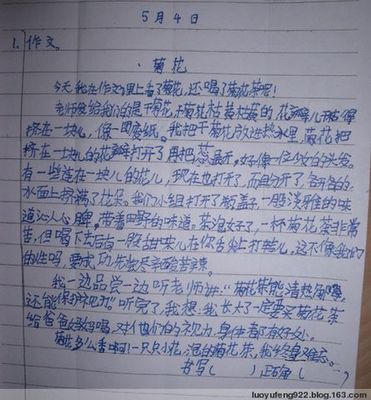 5月4日
1. 作文。
菊花
今天,我在作文课上看了菊花,还喝了菊花茶呢!
老师发给我们的是干菊花,干菊花枯黄枯萎的花瓣儿
挤在一块儿,像一团废纸。我把干菊花放进热水里,菊花把
挤在一块儿的花瓣打开了,好像一位的白头发。
有一些连在一块儿的花儿,现在也打开了,而且分开了,
水面上挤满了花朵。我们小组打开了瓶盖,一股淡雅的味
道沁人心脾,带着田野的味道。茶泡好了,一杯菊花茶非常
苦,但喝下去后,一股甜味儿在你舌尖上打转儿。这不像我们
的性吗 要成功先尝尽辛酸苦辣。
我一边品尝一边听老师讲:"菊花茶能清热解,
还能保护视力。"听完了,我想,我长大了一定要买菊花茶
给爸爸妈妈喝,对他们的视力、身体都有好处。
菊花多么香啊!一只只小花,泡的菊花茶,我终身难忘。
书写( ) 正确( )
luoyufeng922.blog.163.com